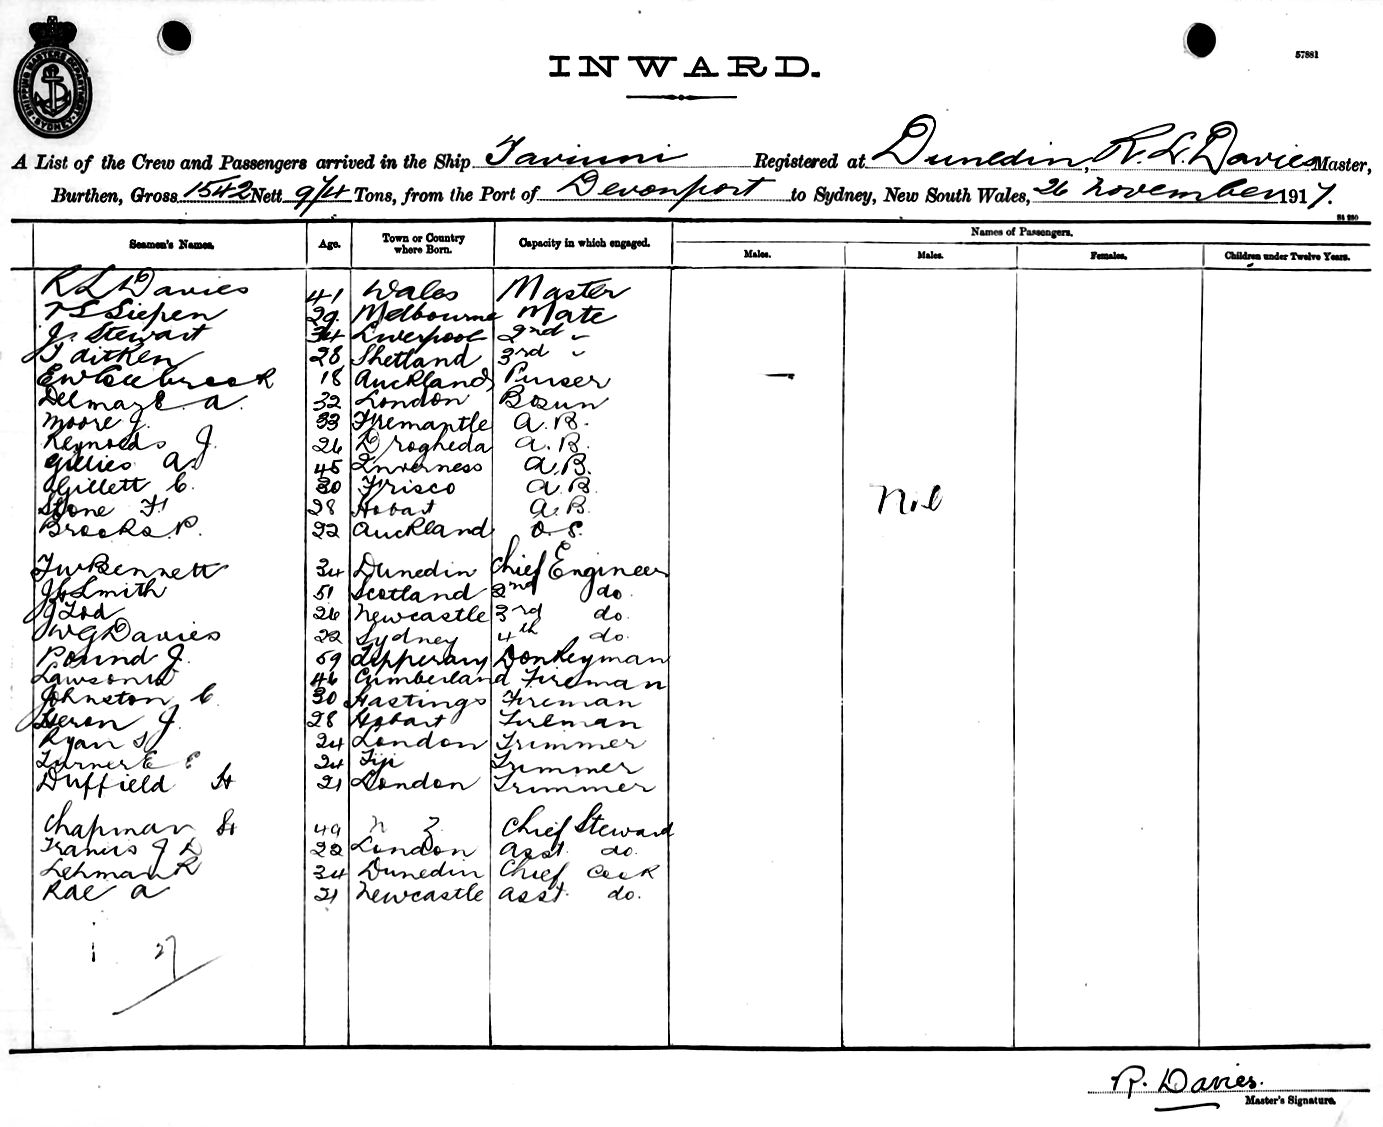 SHIPPING MASTERS DEPARTMENT SYDNEY
57881
INWARD.
A List of the Crew and Passengers arrived in the Ship Taviuni Registered at Dunedin, R. L. Davies Master,
Burthen, Gross 1542 Nett 974 Tons, from the Port of Devonport to Sydney, New South Wales, 26 November 1917.
Seamen's Names. Age. Town or Country where Born. Capacity in which engaged. Names of Passengers.
Males. Males. Females. Children under Twelve Years.
R L Davies 41 Wales Master
Siepen 29 Melbourne Mate
J. Stewart 34 Liverpool 2nd "
T aitken 28 Shetland 3rd "
EW Colebrook 18 Auckland Purser —
Delmaze. a. 32 London Bosun
Moore J. 33 Fremantle A.B.
Reynolds J. 26 Drogheda a.B.
Gillies A 45 Inverness a.B.
Gillett C. 30 Frisco a.B.
Stone F 28 Hobart a.B.
Nil
Brooks. P. 22 Auckland O.S.
Bennett 34 Dunedin Chief Engineer
Smith 51 Scotland 2nd do.
J Tod 26 Newcastle 3rd do.
WG Davies 22 Sydney 4th do.
Pound J. 59 Tipperary Donkeyman
Lawson W 46 Cumberland Fireman
Johnston C. 30 Hastings Fireman
Heron J. 28 Hobart Fireman
Ryan 24 London Trimmer
Turner E 24 Fiji Trimmer
Duffield H 21 London Trimmer
Chapman H 49 N Z Chief Steward
Francis J D 22 London asst. do.
Lehman R 34 Dunedin Chief Cook
Rae a 21 Newcastle asst. do.
27
R. Davies.
Master's Signature.